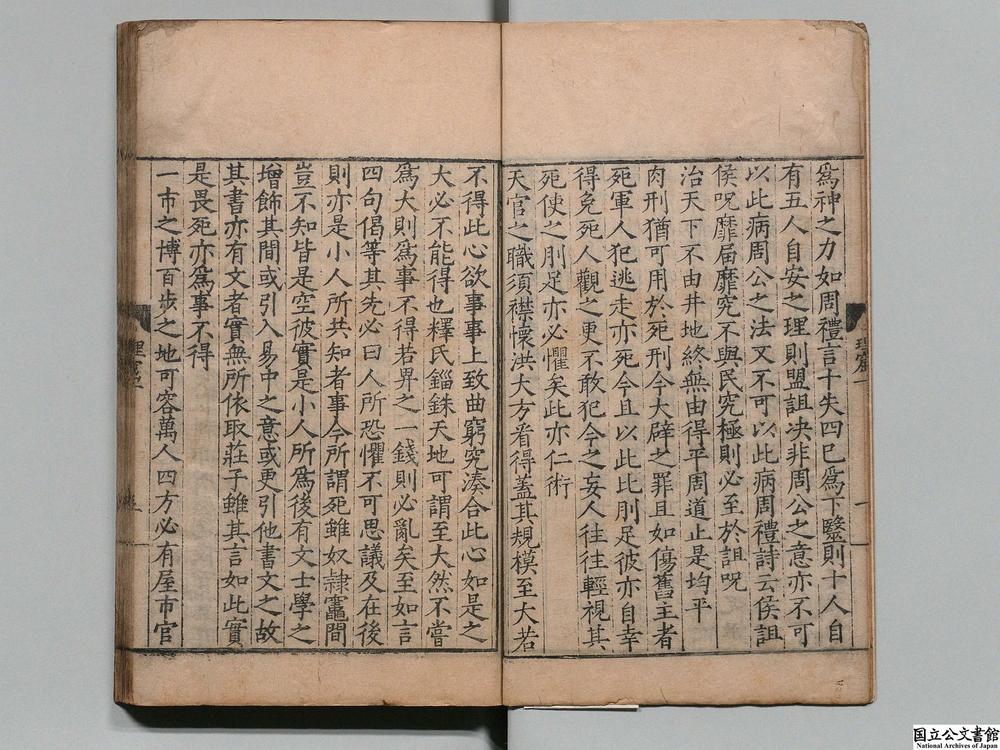 為神之力如周禮言十失四已為下毉則十人自
有五人自安之理則盟詛决非周公之意亦不可
以此病周公之法又不可以此病周禮詩云侯詛
侯呪靡届靡究不與民究極則必至於詛呪
治天下不由井地終無由得平周道止是均平
肉刑猶可用於死刑今大辟之罪且如傷舊主者
死軍人犯逃走亦死今且以此比刖足彼亦自幸
得免死人觀之更不敢犯今之妄人往往輕視其
死使之刖足亦必懼矣此亦仁術
天官之職須襟懷洪大方看得蓋其規模至大若
不得此心欲事事上致曲窮究凑合此心如是之
大必不能得也釋氏錙銖天地可謂至大然不嘗
為大則為事不得若畀之一錢則必亂矣至如言
四句偈等其先必曰人所恐懼不可思議及在後
則亦是小人所共知者事今所謂死雖奴隷竈間
豈不知皆是空彼實是小人所為後有文士學之
增飾其間或引入易中之意或更引他書文之故
其書亦有文者實無所依取莊子雖其言如此實
是畏死亦為事不得
一市之博百步之地可容萬人四方必有屋市官
理窟一
国立公文書館
National Archives of Japan